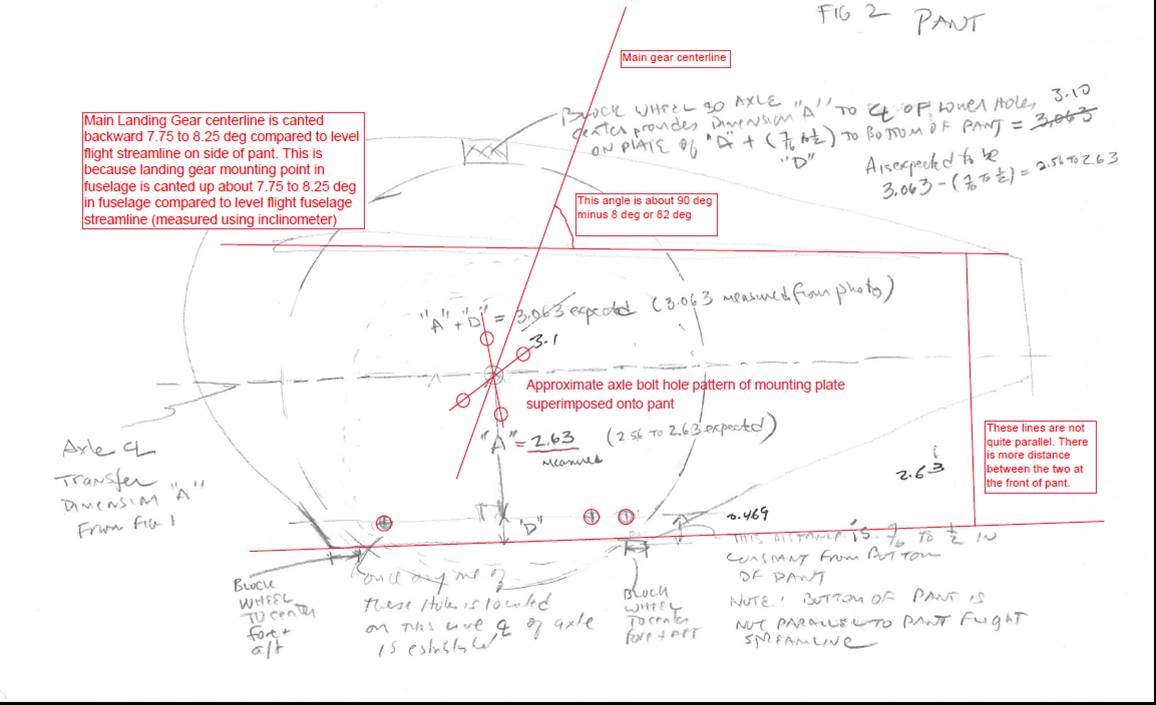 FIG 2 PANT
Main gear centerline
BLOCK WHEEL SO AXLE
center provides Dimension "A" TO ℄ OF LOWER HOLES 3.10
ON PLATE OF "A" + (7/16 to 1/2) TO BOTTOM OF PANT = 3.063
"D"
A is expected to be
3.063 - (7/16 to 1/2) = 2.56 to 2.63
Main Landing Gear centerline is canted
backward 7.75 to 8.25 deg compared to level
flight streamline on side of pant. This is
because landing gear mounting point in
fuselage is canted up about 7.75 to 8.25 deg
in fuselage compared to level flight fuselage
streamline (measured using inclinometer)
This angle is about 90 deg
minus 8 deg or 82 deg
"A"+"D" = 3.063 expected (3.063 measured from photo)
3.1
Approximate axle bolt hole pattern of mounting plate
superimposed onto pant
"A" = 2.63 (2.56 TO 2.63 expected)
measured
Axle ℄
Transfer
Dimension "A"
From Fig 1
These lines are not
quite parallel. There
is more distance
between the two at
the front of pant.
2.63
"D"
0.469
THIS DISTANCE IS 7/16 TO 1/2 IN
CONSTANT FROM BOTTOM
OF PANT
NOTE: BOTTOM OF PANT IS
NOT PARALLEL TO PANT FLIGHT
STREAMLINE
BLOCK
WHEEL
TO center
fore +
aft
once any one of
these Holes is located
on this line ℄ of axle
is established
BLOCK
WHEEL
TO center
fore + AFT